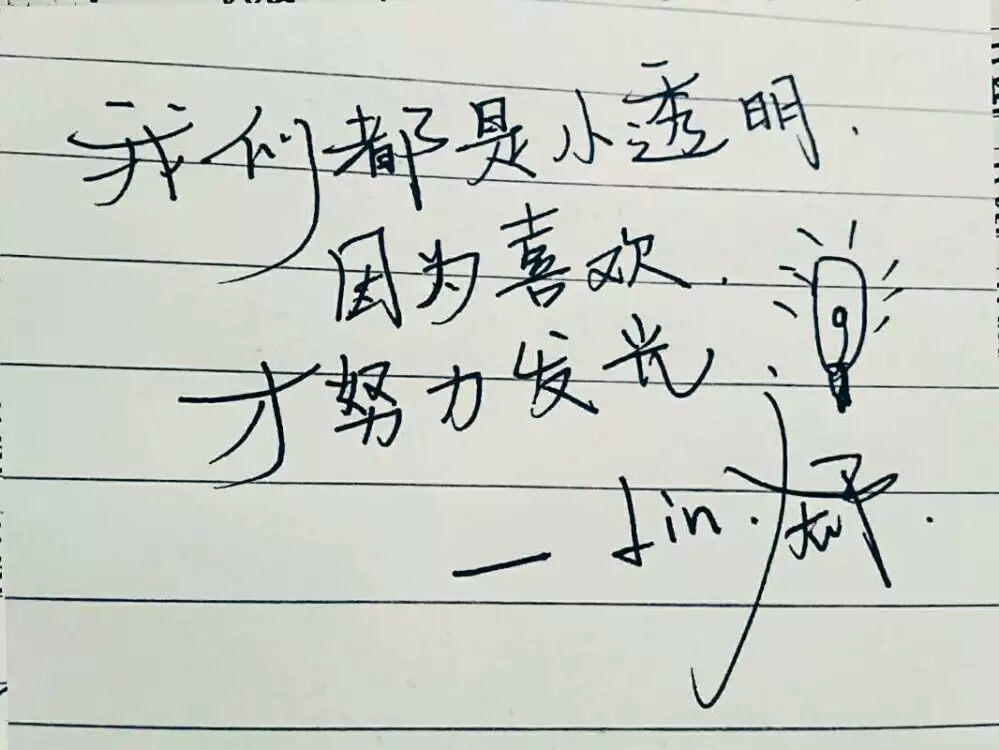 我们都是小透明.
因为喜欢.
才努力发光.
— Lin.